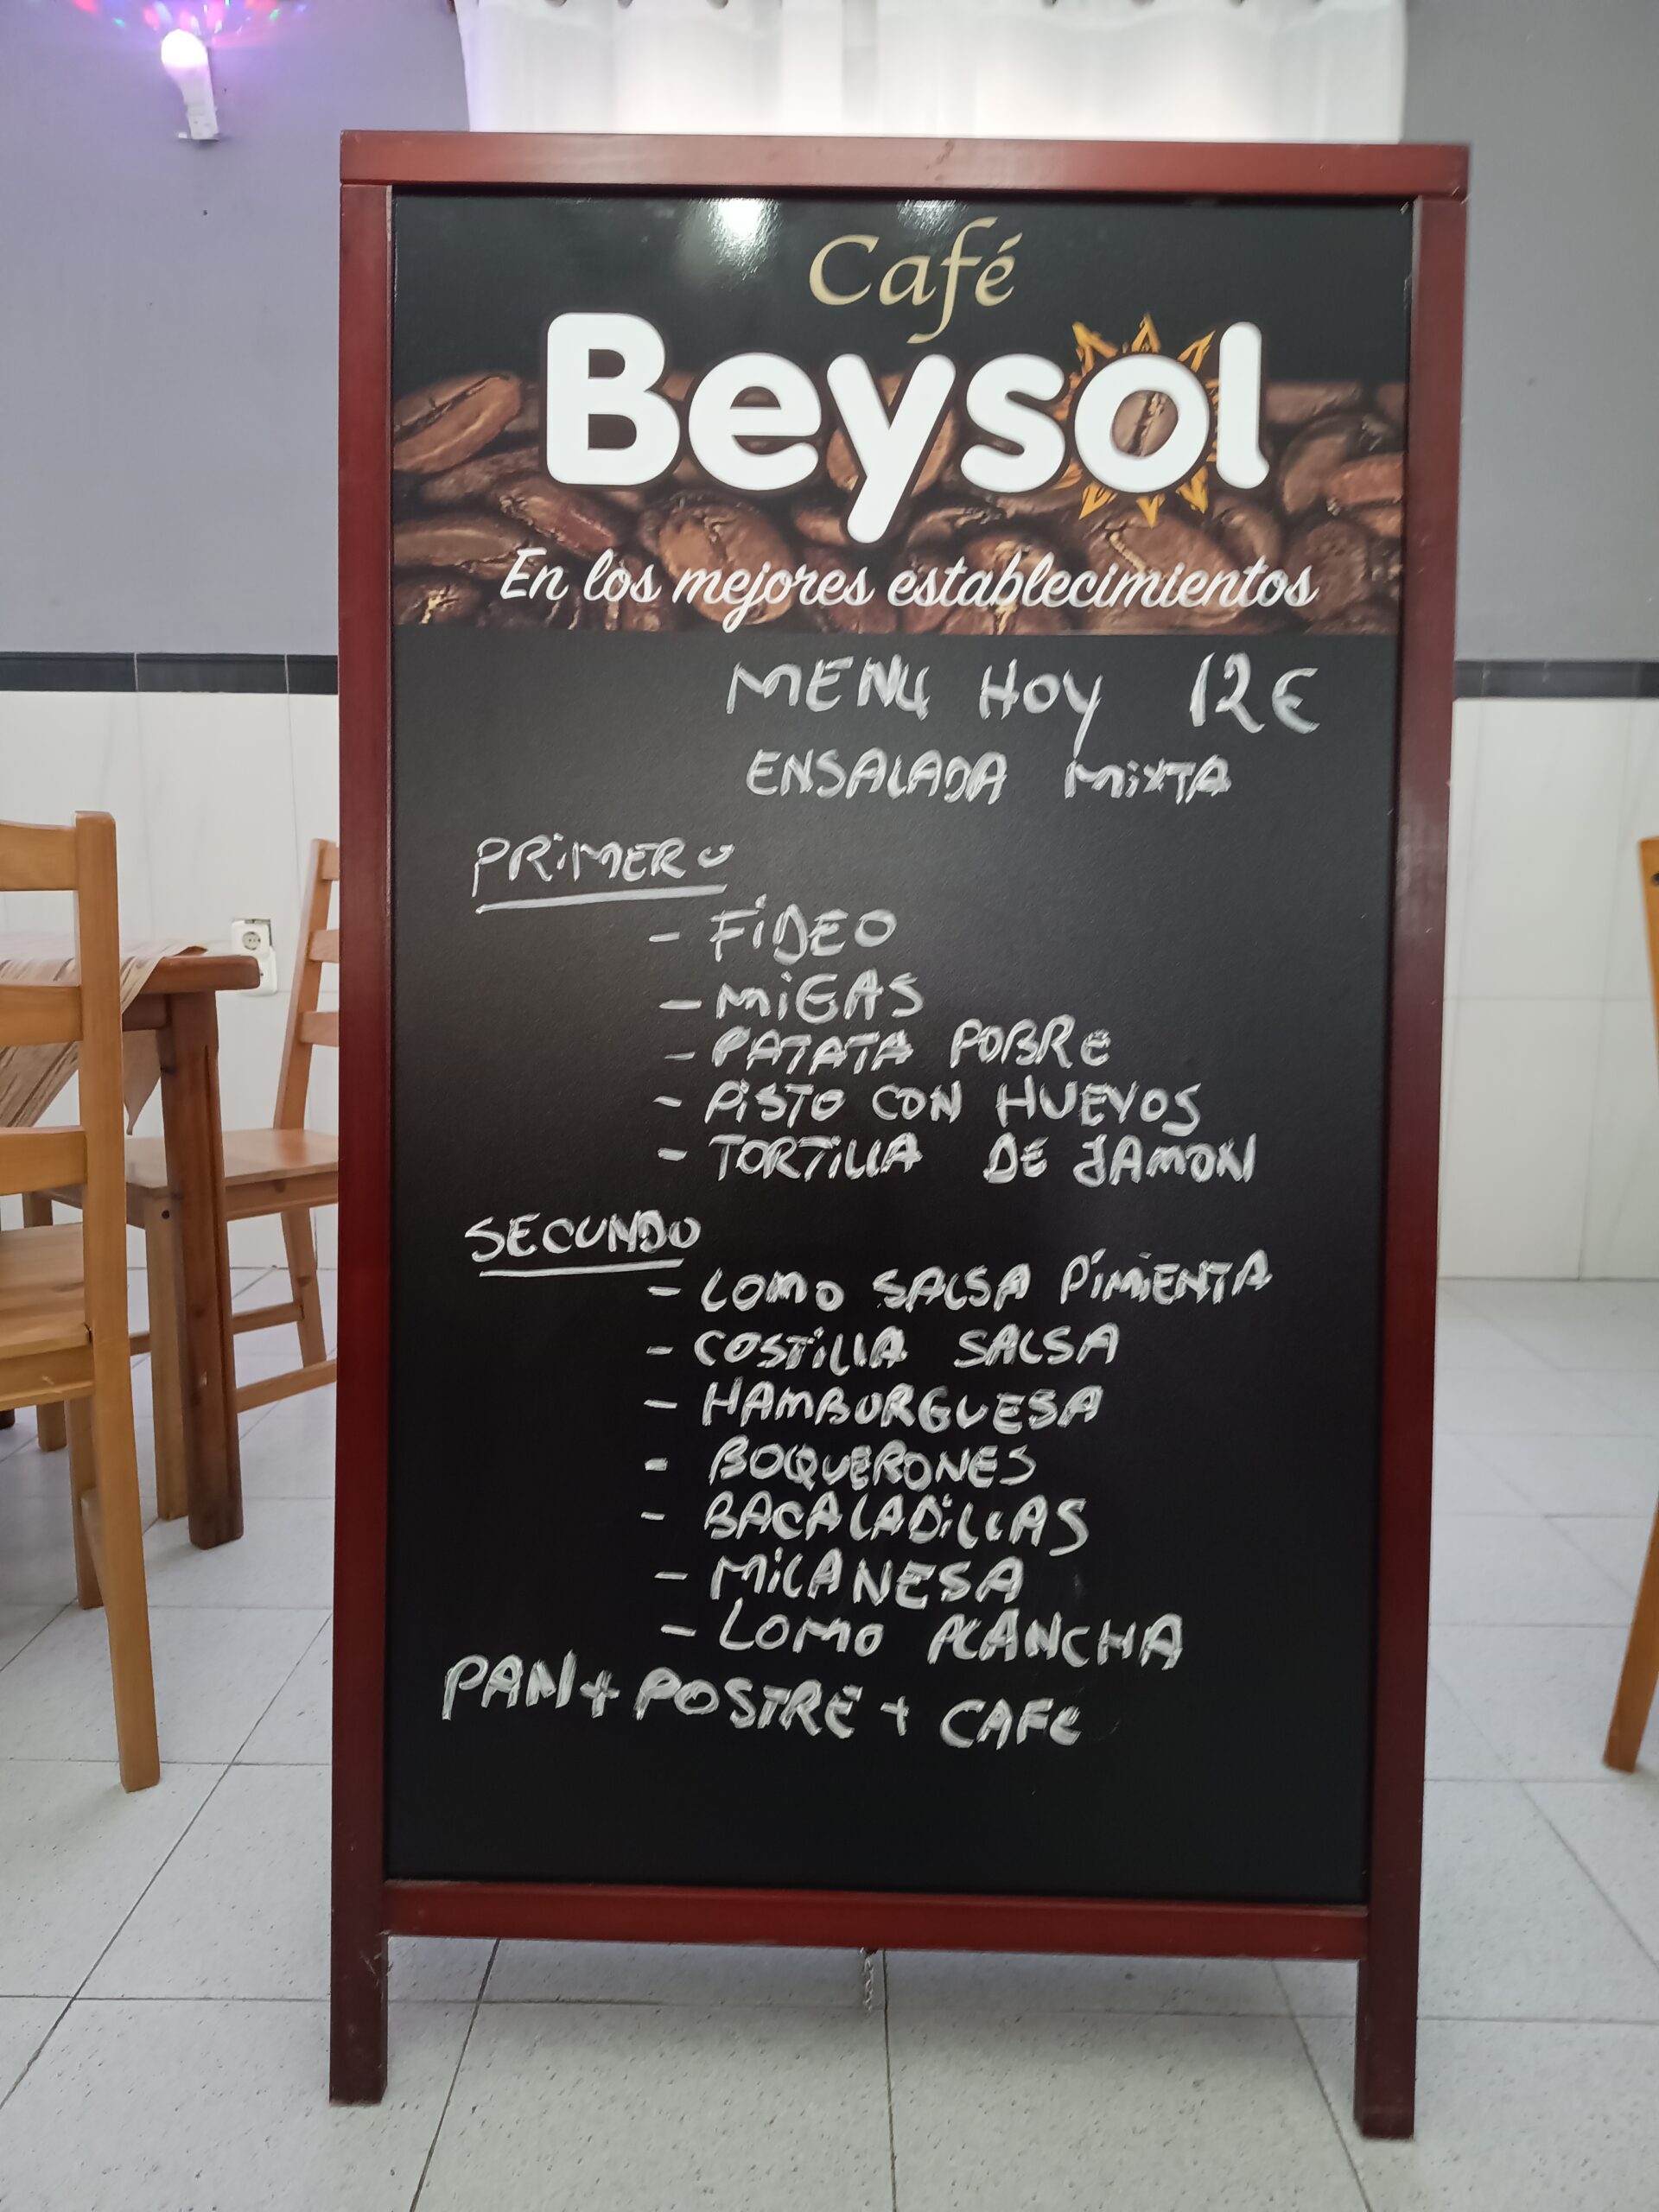 Café
Beysol
En los mejores establecimientos
MENU HOY 12€
ENSALADA MiXTA
PRiMERO
- FiDEO
- MiGAS
- PATATA POBRe
- PiSTO CON HUEVOS
- TORTiLLA DE JAMON
SECUNDO
- LOMO SALSA PiMiENTA
- COSTiLLA SALSA
- HAMBURGUESA
- BOQUERONES
- BACALADiLLAS
- MiLANESA
- LOMO PLANCHA
PAN + POSTRE + CAFe